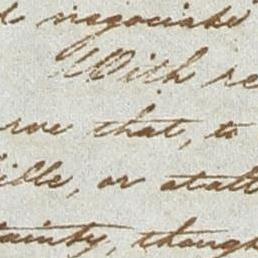 d negociate
With re
rve that, to
ille, or at all
tainty, though